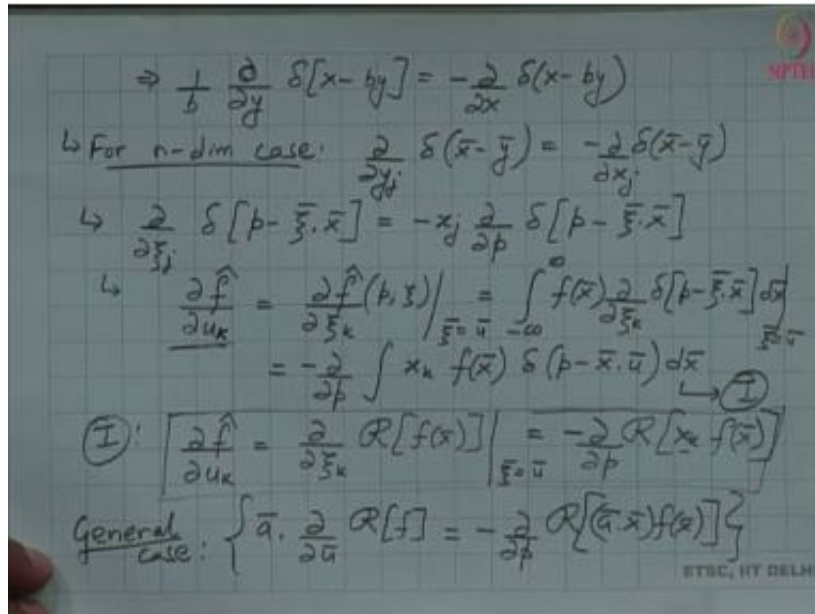 NPTEL
⇒ 1/b ∂/∂y δ[x - by] = -∂/∂x δ(x - by)
↳ For n-dim case: ∂/∂y_j δ(x̄ - ȳ) = -∂/∂x_j δ(x̄ - ȳ)
↳ ∂/∂ξ_j δ[p - ξ̄·x̄] = -x_j ∂/∂p δ[p - ξ̄·x̄]
↳ ∂f̂/∂u_k = ∂f̂/∂ξ_k (p, ξ)|_{ξ̄=ū} = ∫_{-∞}^{∞} f(x̄) ∂/∂ξ_k δ[p - ξ̄·x̄] dx̄|_{ξ̄=ū}
= -∂/∂p ∫ x_k f(x̄) δ(p - x̄·ū) dx̄ → Ⓘ
Ⓘ: [∂f̂/∂u_k = ∂/∂ξ_k R[f(x̄)]|_{ξ̄=ū} = -∂/∂p R[x_k f(x̄)]]
General case: {ā · ∂/∂ū R[f] = -∂/∂p R[(ā·x̄)f(x̄)]}
ETSC, IIT DELHI